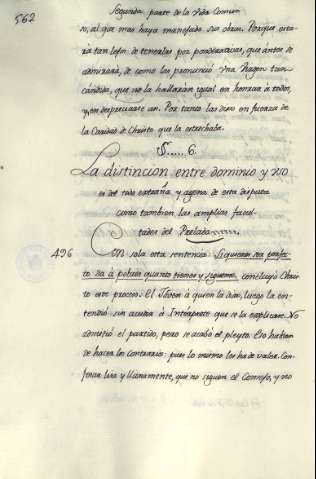 562
Segunda parte de la Vida Comun
o, al que mas haya manejado sus obras. Porque esta-
ra tan lejos de tenerlas por ponderativas, que antes se
admirará, de como las pronunció una Virgen tan
cándida, que no la hallarán igual en honrrar à todos,
y en despreciarse asi. Por tanto las dixo en fuerza de
la Caridad de Christo que la estrechaba.
§. 6.
La distincion entre dominio y uso
es del todo extraña y agena de esta disputa
como tambien las amplias facul-
tades del Prelado
496 Con sola esta sentencia Si quieres ser perfec-
to da à pobres quanto tienes y sigueme concluyó Chris-
to este proceso. El Joven à quien la dixo, luego la en-
tendió sin acudir à Interprete que se la explicase. No
cometió el partido, pero se acabó el pleyto. Eso habian
de hacer los contrarios: pues lo mismo les ha de valer. Con-
fesar lisa y llanamente, que no siguen el Consejo, y no